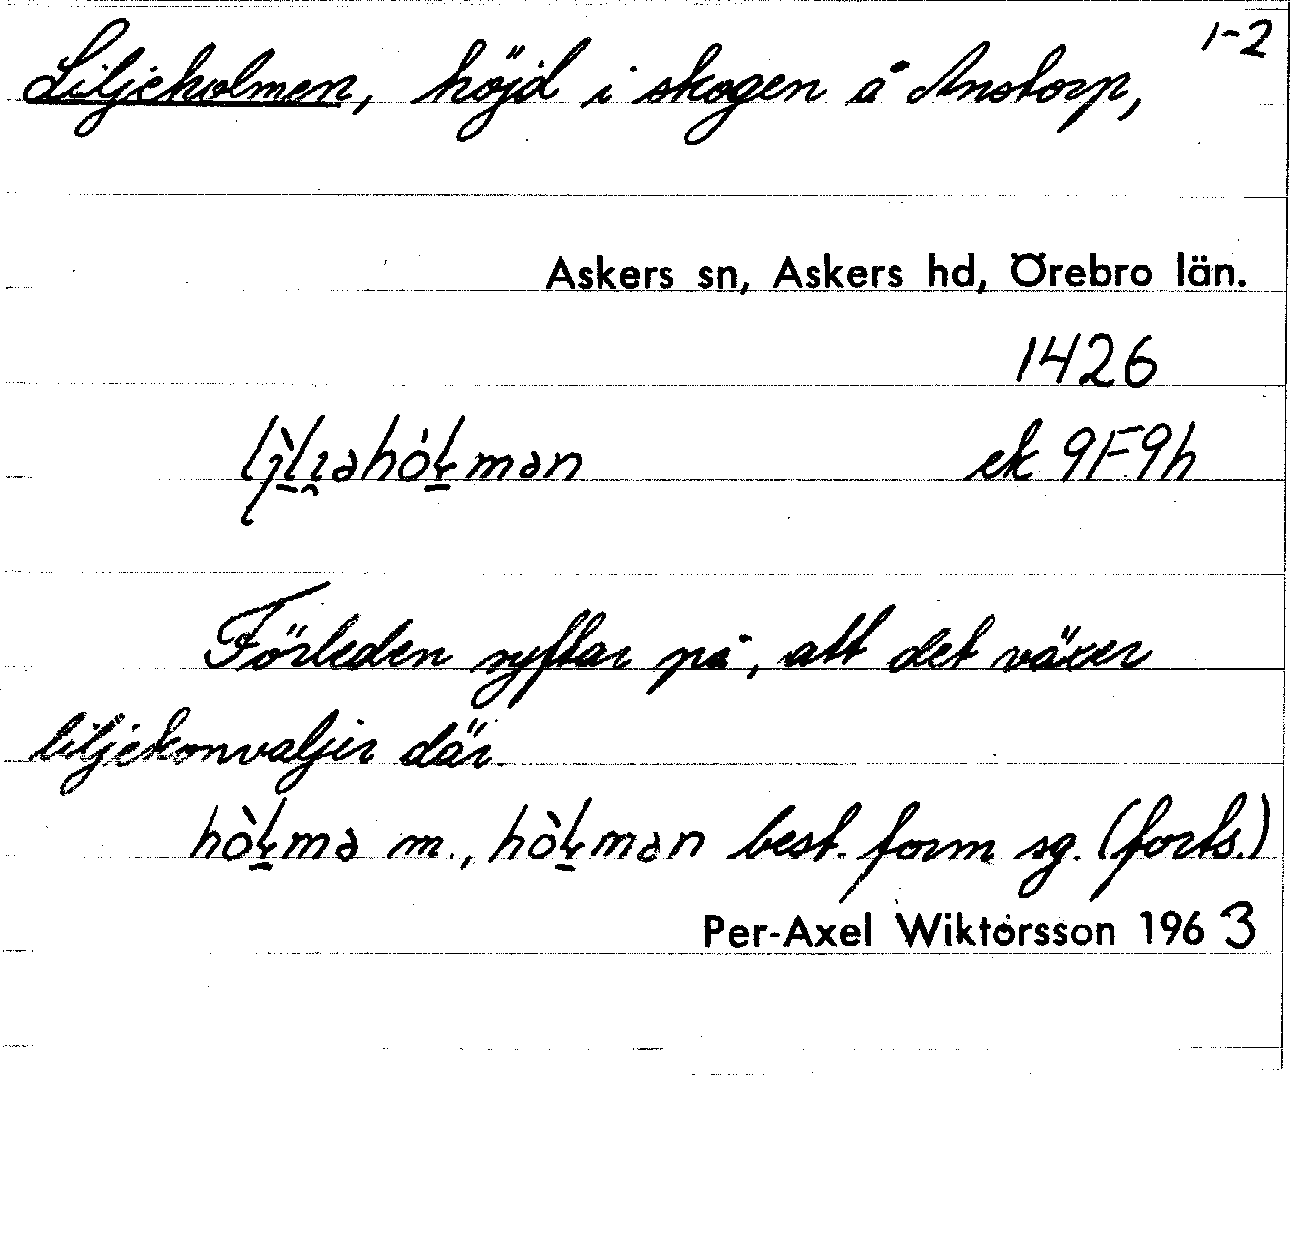 1-2
Liljeholmen, höjd i skogen å Anstorp,
Askers sn, Askers hd, Örebro län.
1426
ek 9F9h
Förleden syftar på, att det växer
liljekonvaljer där.
hòɫmə m., hòɫmən best. form sg. (forts.)
Per-Axel Wiktorsson 1963